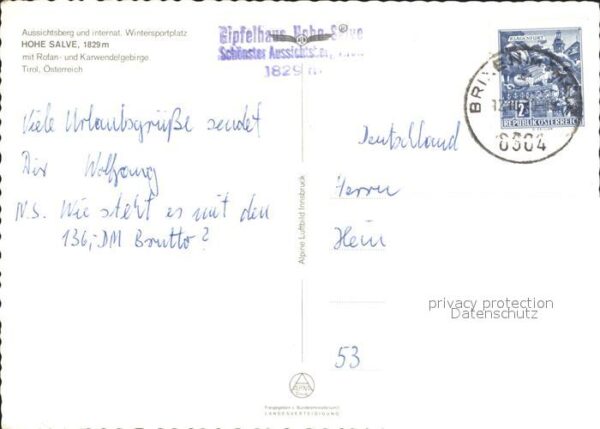 Aussichtsberg und internat. Wintersportplatz
HOHE SALVE, 1829 m
mit Rofan- und Karwendelgebirge
Tirol, Österreich
Gipfelhaus Hohe Salve
Schönster Aussichtsberg
1829 m
KLAGENFURT
S 2
REPUBLIK ÖSTERREICH
BRIXEN
6364
Viele Urlaubsgrüße sendet
Dir Wolfgang
N.S. Wie steht es mit den
136,- DM Brutto?
Deutschland
Herrn
Hein
53
Alpine Luftbild Innsbruck
privacy protection
Datenschutz
LANDESVERTEIDIGUNG